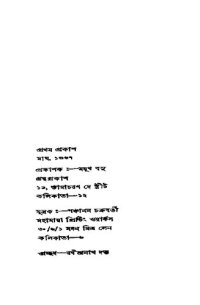 প্রথম প্রকাশ
মাঘ, ১৩৬৭
প্রকাশক : ময়ূখ বসু
গ্রন্থপ্রকাশ
১৯, শ্যামাচরণ দে স্ট্রীট
কলিকাতা—১২
মুদ্রক : পঞ্চানন চক্রবর্তী
মহামায়া প্রিন্টিং ওয়ার্কস
৩০/৬/১ মদন মিত্র লেন
কলিকাতা—৬
প্রচ্ছদ—রবীন্দ্রনাথ দত্ত